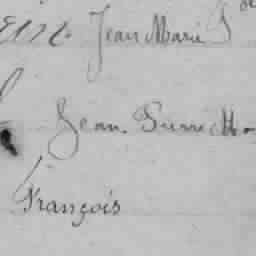 Jean Marie
Jean Pierre M.
François